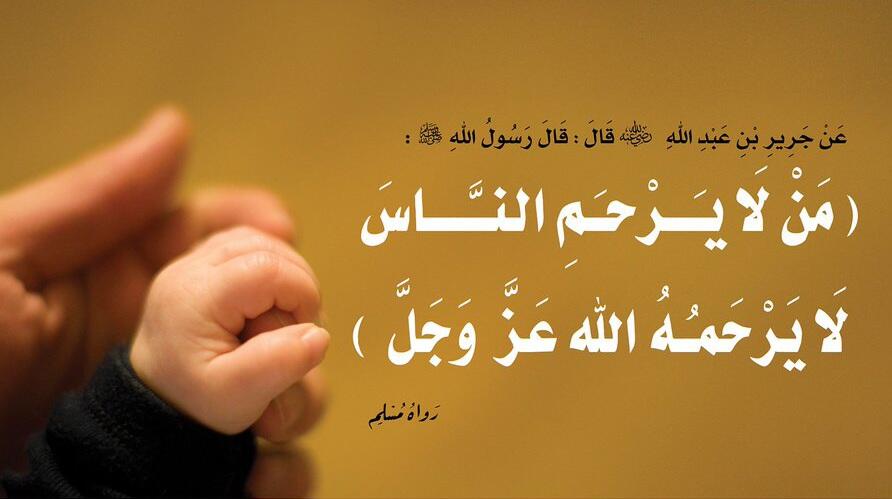 عَنْ جَرِيرِ بْنِ عَبْدِ اللهِ ﵁ قَالَ : قَالَ رَسُولُ اللهِ ﷺ :
( مَنْ لَا يَـــرْحَمِ النَّـــاسَ
لَا يَرْحَمُـهُ الله عَزَّ وَجَلَّ )
رَوَاهُ مُسْلِم